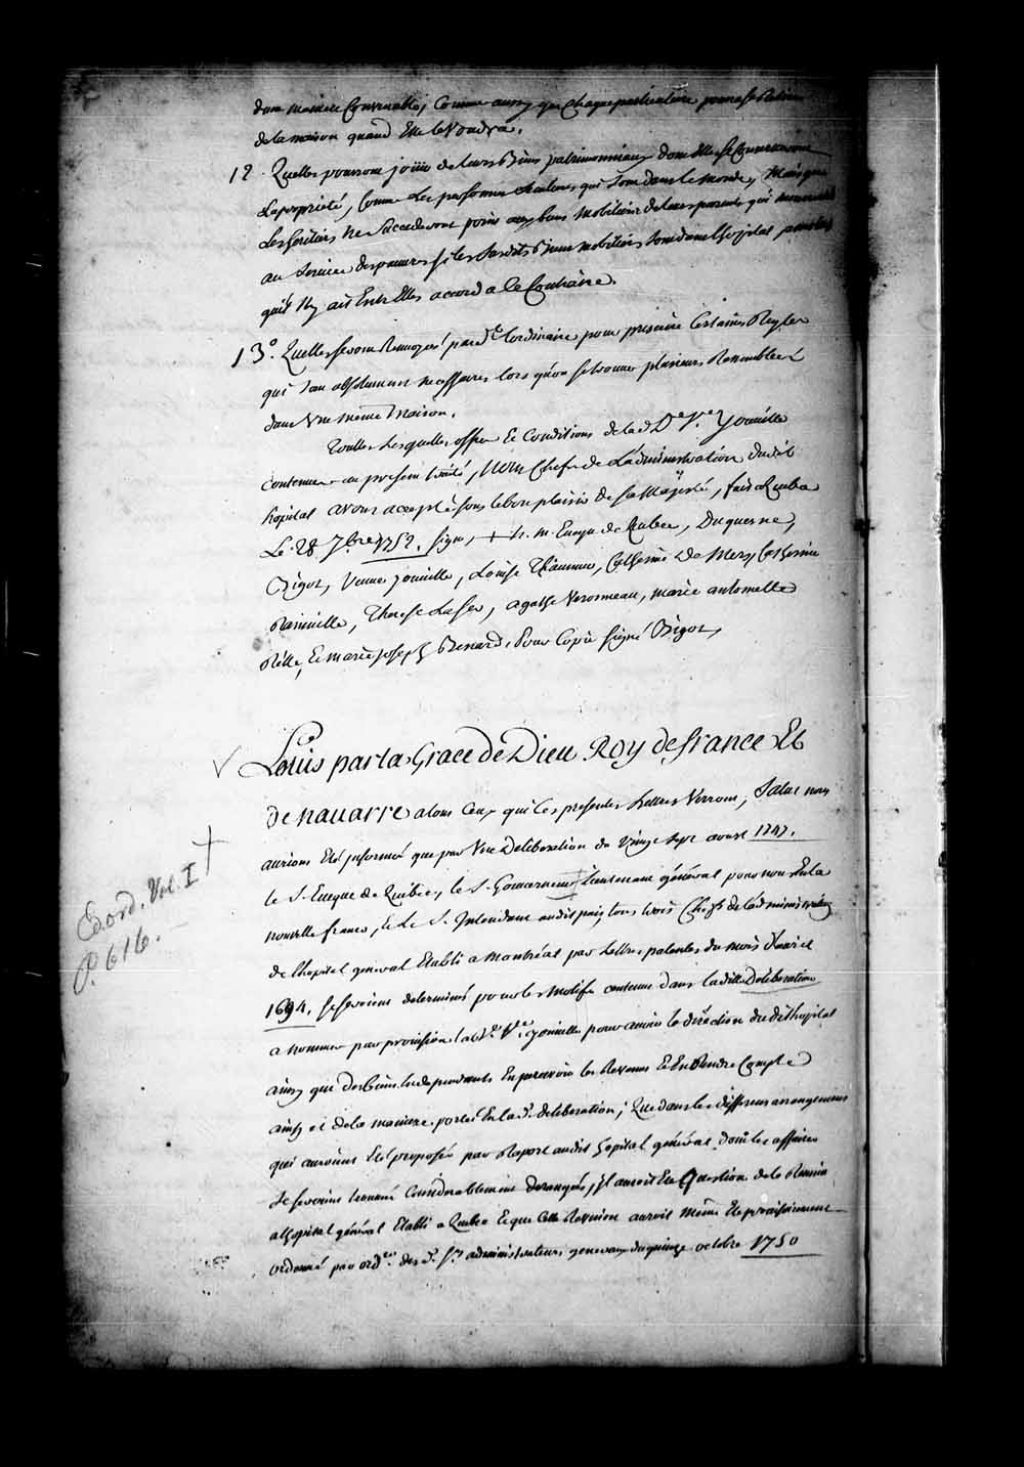 d'une maniere Convenable, Comme aussy que Chaque particuliere pourra se Retirer
de la maison quand Elle le Voudra.
12. Quelles pourront joüir de leurs Biens patrimoniaux dont Elles se Conserveront
La proprieté, Comme Les personnes Seculieres qui sont dans le monde, Mais que
Les heritiers ne Succederont point aux biens mobiliers de leurs parents qui mourront
au Service des pauvres si les Susdits Biens mobiliers sont dans l'hopital
qu'il N'y ait Entr'Elles accord a le Contraire.
13.° Quelles seront Renvoyés par d.t lordinaire pour prescrire Certaines Regles
qui sont absolument necessaires lors qu'on se trouve plusieurs Rassemblées
dans Une même Maison.
Toutes Lesquelles offres Et Conditions de la d. D.e V.e Youuille
contenues au present traité, Nous Chefs de L'administration dudit
hopital avons accepté sous le bon plaisir de sa Majesté, fait a Quebec
Le 28 7.bre 1752. signé, + h. m. Eveque de Quebec, Duquesne,
Bigot, Veuve youuille, Louise Thaumur, Catherine De Mers, Catherine
Rainuille, Therese Laser, agathe Veronneau, marie antoinette
Rélle, Et marie joseph Benard. Pour Copie signé Bigot,
Louis par la Grace de Dieu Roy de france Et
de nauarre a tous Ceux qui Ces presentes Lettres Verront, Salut nous
aurions Eté jnformé que par Une Deliberation du Vingt sept aoust 1747.
le S. Eueque de Quebec, le S. Gouverneur Lieutenant général pour nous En la
nouvelle france, et Le S. Intendant audit pais, tous trois Chefs de L'administration
de l'hopital general Etabli a Montréal par Lettres patentes du mois d'avril
1694. se seroient determinés pour les Motifs contenus dans la dite Deliberation
a nommer par provision la d.e V.e youuille pour avoir la direction du dit hopital
ainsy que des biens En dependants En percevoir les Revenus Et En Rendre Compte
ainsy et de la maniere portée En la d. deliberation; Que dans les differens arrangemens
qui auroient Eté proposés par Raport audit hopital général dont les affaires
se seroient trouvé Considerablement derangées, jl auroit Eté Question de le Reunir
a l'hopital général Etabli a Quebec Et que Cette Reunion auroit même Eté provisoirement
ordonné par ord.ce des d. S.rs administrateurs generaux du quinze octobre 1750
Ed.ord. Vol. I
P. 616.